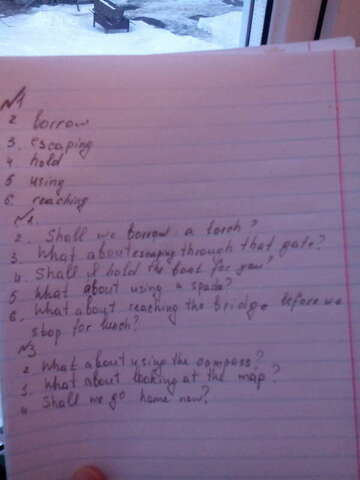 №1
2 borrow
3. escaping
4 hold
5 using
6. reaching
№2.
2. Shall we borrow a torch?
3. What about escaping through that gate?
4 Shall I hold the boat for you?
5 What about using a spade?
6. What about reaching the bridge before we
stop for lunch?
№3
2 What about using the compass?
3. What about looking at the map?
4 Shall we go home now?